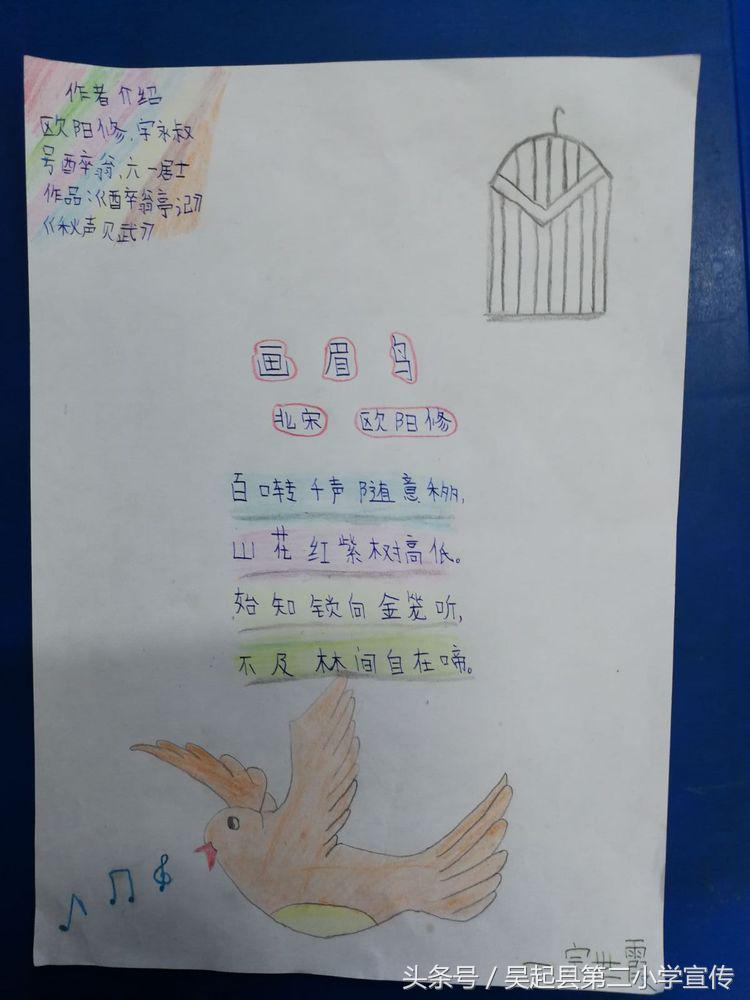 作者介绍
欧阳修,字永叔
号醉翁、六一居士
作品:《醉翁亭记》
《秋声赋》
画眉鸟
北宋 欧阳修
百啭千声随意移,
山花红紫树高低。
始知锁向金笼听,
不及林间自在啼。
头条号／吴起县第二小学宣传